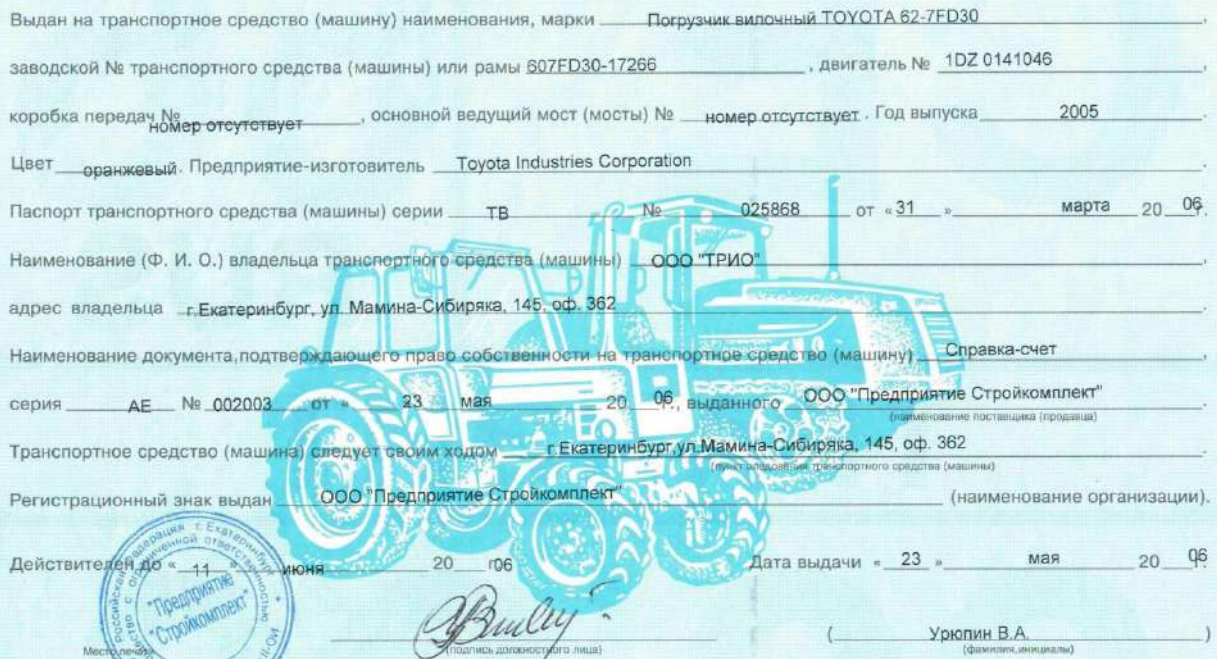 Выдан на транспортное средство (машину) наименования, марки Погрузчик вилочный TOYOTA 62-7FD30,
заводской № транспортного средства (машины) или рамы 607FD30-17266, двигатель № 1DZ 0141046,
коробка передач № номер отсутствует, основной ведущий мост (мосты) № номер отсутствует. Год выпуска 2005.
Цвет оранжевый. Предприятие-изготовитель Toyota Industries Corporation.
Паспорт транспортного средства (машины) серии ТВ № 025868 от «31» марта 20 06 г.
Наименование (Ф. И. О.) владельца транспортного средства (машины) ООО "ТРИО",
адрес владельца г.Екатеринбург, ул. Мамина-Сибиряка, 145, оф. 362.
Наименование документа, подтверждающего право собственности на транспортное средство (машину) Справка-счет,
серия АЕ № 002003 от « 23 мая 20 06 г., выданного ООО "Предприятие Стройкомплект".
(наименование поставщика (продавца)
Транспортное средство (машина) следует своим ходом г.Екатеринбург,ул.Мамина-Сибиряка, 145, оф. 362.
(пункт следования транспортного средства (машины)
Регистрационный знак выдан ООО "Предприятие Стройкомплект" (наименование организации).
Действителен до « 11 » июня 20 06 г. Дата выдачи « 23 » мая 20 06 г.
Российская Федерация г. Екатеринбург
с ограниченной ответственностью
"Предприятие
"Стройкомплект"
(Урюпин В.А.)
Место печати (подпись должностного лица) (фамилия, инициалы)